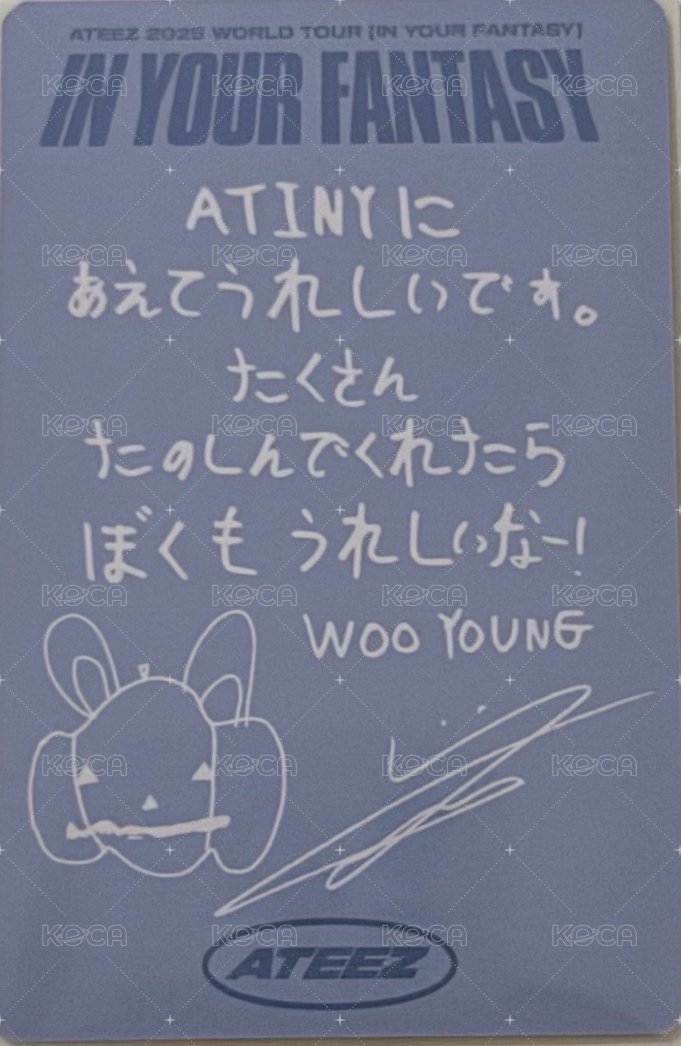 ATEEZ 2025 WORLD TOUR [IN YOUR FANTASY]
IN YOUR FANTASY
ATINYに
あえてうれしいです。
たくさん
たのしんでくれたら
ぼくも うれしいなー!
WOO YOUNG
ATEEZ
KOCA